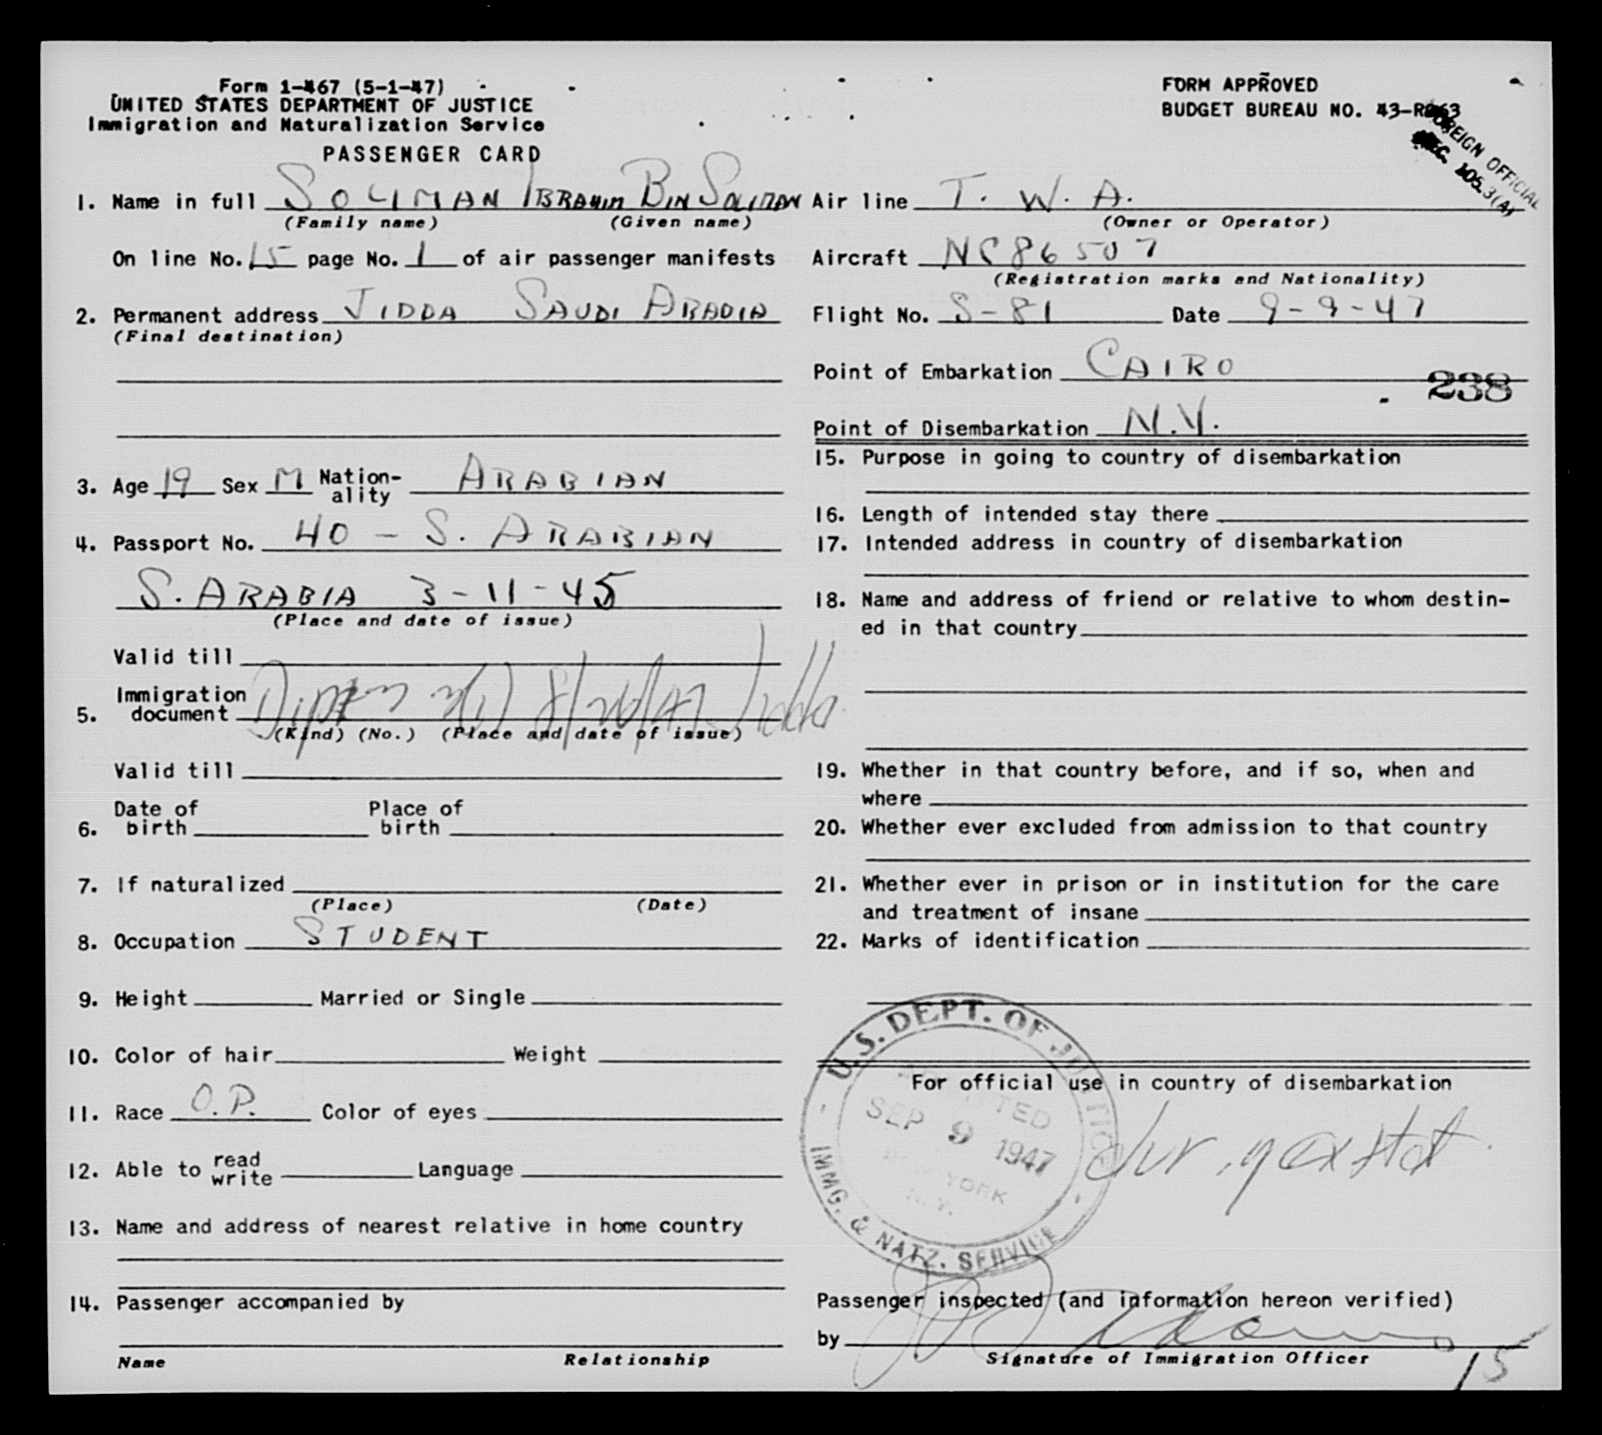 Form 1-467 (5-1-47)
UNITED STATES DEPARTMENT OF JUSTICE
Immigration and Naturalization Service
PASSENGER CARD
FORM APPROVED
BUDGET BUREAU NO. 43-R063
FOREIGN OFFICIAL
SEC. 105.3(A)
1. Name in full SOLIMAN IBRAHIM BIN SOLIMAN
(Family name) (Given name)
On line No. 15 page No. 1 of air passenger manifests
2. Permanent address JIDDA SAUDI ARABIA
(Final destination)
3. Age 19 Sex M Nation-ality ARABIAN
4. Passport No. 40 - S. ARABIAN
S. ARABIA 3-11-45
(Place and date of issue)
Valid till
5. Immigration document 8/26/47 Jidda
(Kind) (No.) (Place and date of issue)
Valid till
6. Date of birth Place of birth
7. If naturalized
(Place) (Date)
8. Occupation STUDENT
9. Height Married or Single
10. Color of hair Weight
11. Race O.P. Color of eyes
12. Able to read write Language
13. Name and address of nearest relative in home country
14. Passenger accompanied by
Name Relationship
Air line T. W. A.
(Owner or Operator)
Aircraft NC86507
(Registration marks and Nationality)
Flight No. S-81 Date 9-9-47
Point of Embarkation CAIRO
238
Point of Disembarkation N.Y.
15. Purpose in going to country of disembarkation
16. Length of intended stay there
17. Intended address in country of disembarkation
18. Name and address of friend or relative to whom destin-
ed in that country
19. Whether in that country before, and if so, when and
where
20. Whether ever excluded from admission to that country
21. Whether ever in prison or in institution for the care
and treatment of insane
22. Marks of identification
For official use in country of disembarkation
U.S. DEPT. OF JUSTICE
ADMITTED
SEP 9 1947
NEW YORK
N.Y.
IMMG. & NATZ. SERVICE
Passenger inspected (and information hereon verified)
by
Signature of Immigration Officer
15